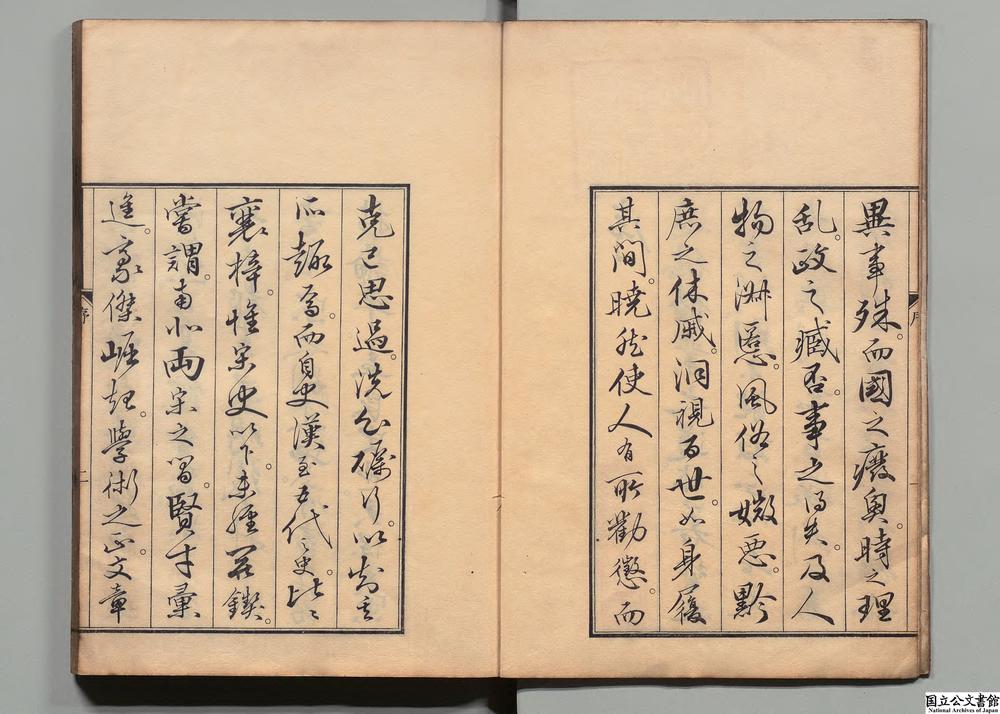 異事殊。而國之癈興。時之理
乱。政之臧否。事之得失。及人
物之淑慝。風俗之媺惡。黔
庶之休戚。洞視百世。如身履
其間。曉然使人有所勸懲。而
克己思過。洗心礪行。以
所趣焉。而自史漢至五代之史。比比
襄梓。惟宋史以下。未經器鐭。
嘗謂。南北兩宋之間。賢才彙
進。豪傑崛起。學術之正。文章
序
二
国立公文書館
National Archives of Japan